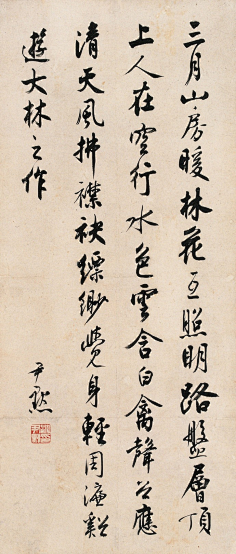 三月山房暖林花互照明路盤層頂
上人在空行水色雲含白禽聲公應
清天風拂襟袂縹緲覺身輕周濂谿
遊大林之作
尹默